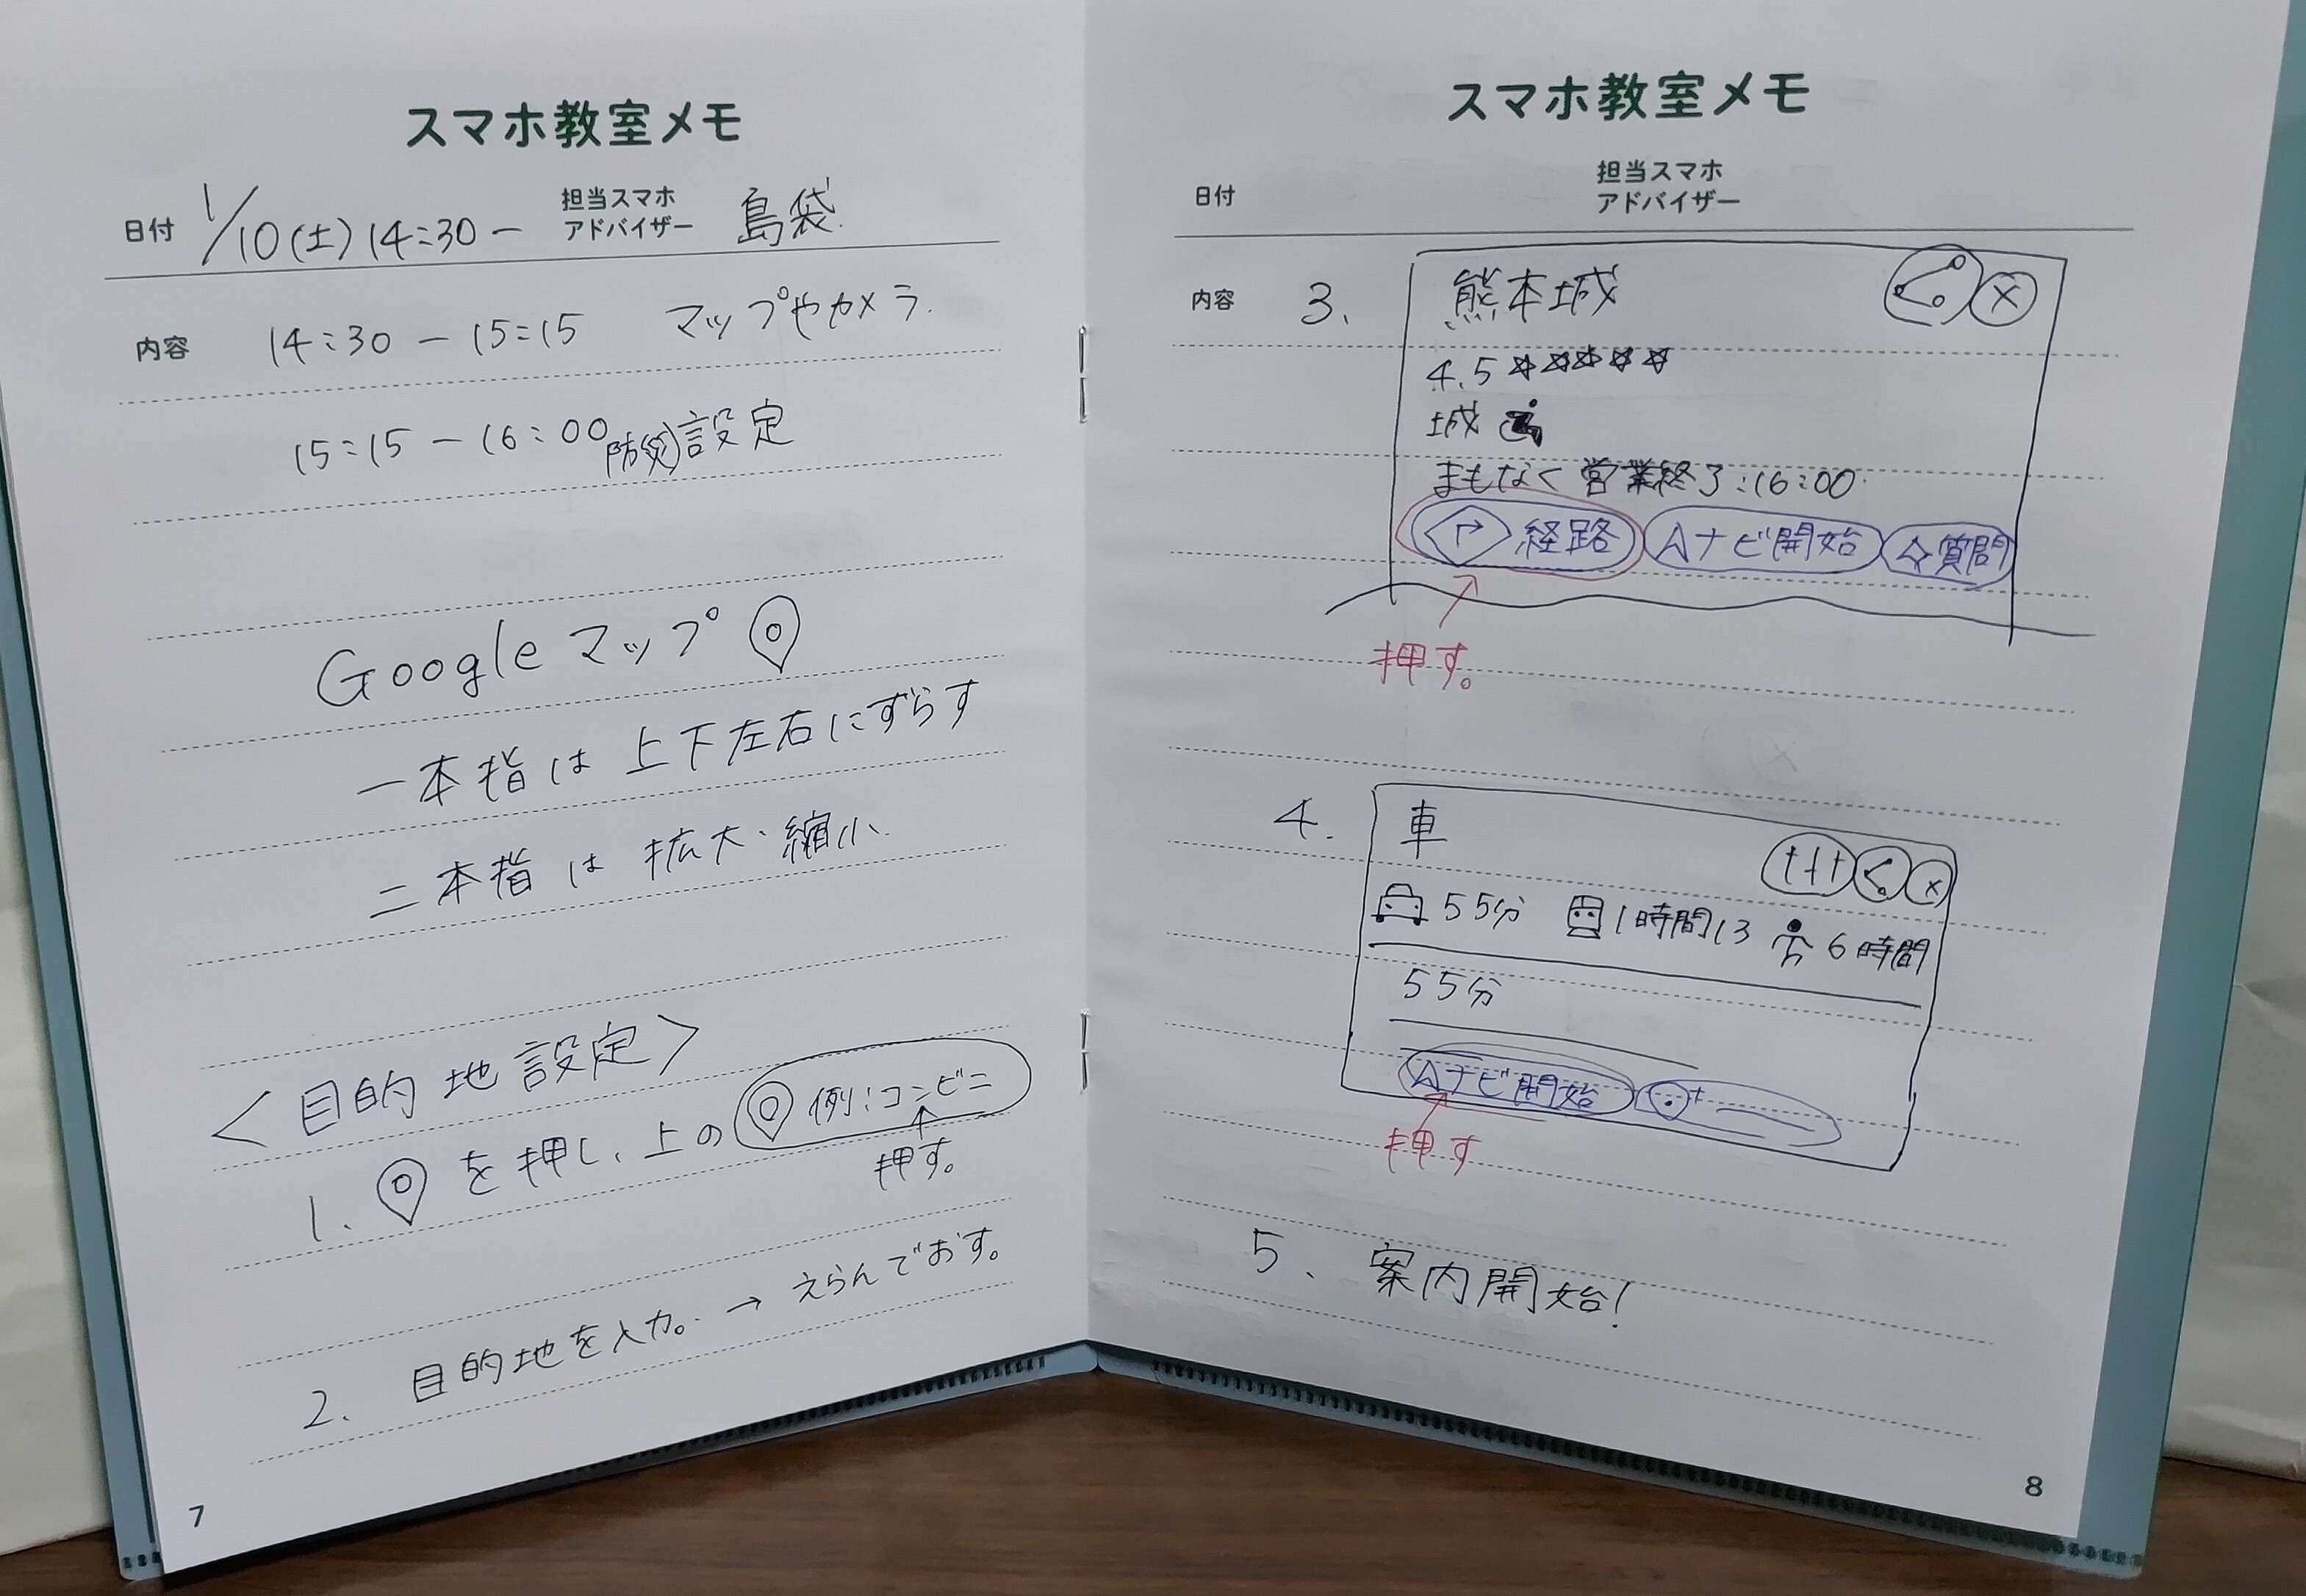 スマホ教室メモ
日付 1/10(土)14:30ー 担当スマホアドバイザー 島袋
内容 14:30 ー 15:15 マップやカメラ.
15:15 ー 16:00 防災設定
Google マップ
一本指は 上下左右にずらす
二本指は 拡大・縮小
<目的地設定>
1. を押し、上の 例:コンビニ
押す。
2. 目的地を入力。→ えらんでおす。
7
スマホ教室メモ
日付 担当スマホアドバイザー
内容 3. 熊本城 ×
4.5 ☆☆☆☆☆
城
まもなく営業終了:16:00
経路 ナビ開始 質問
押す。
4. 車 ×
55分 1時間13 6時間
55分
ナビ開始
押す
5、案内開始!
8